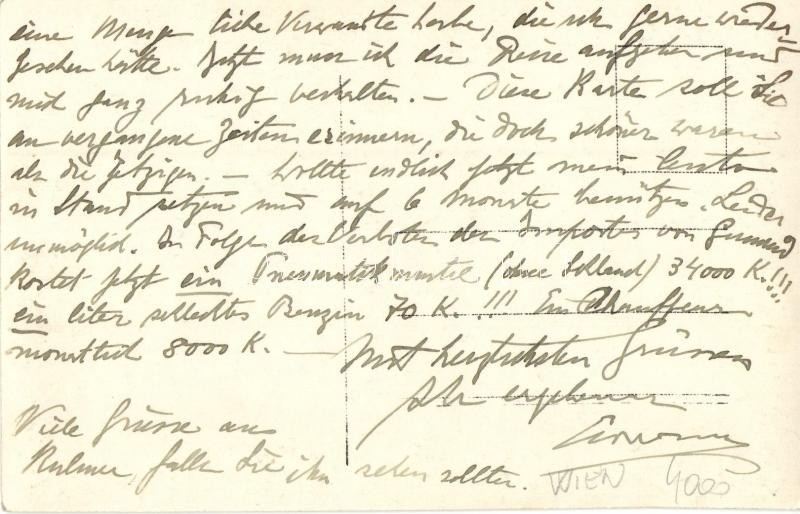 eine Menge liebe Verwandte habe, die ich gerne wieder=
gesehen hätte. Jetzt muss ich die Reise aufgeben und
mich ganz ruhig verhalten. — Diese Karte soll Sie
an vergangene Zeiten erinnern, die doch schöner waren
als die jetzigen. — Wollte endlich jetzt mein
in Stand setzen und auf 6 Monate benützen. Leider
unmöglich. In Folge des Verbotes des Importes von Gummi
kostet jetzt ein Pneumatikmantel (ohne Schlauch) 34000 K.!!!
ein Liter schlechtes Benzin 70 K. !!! Ein Chauffeur
monatlich 8000 K. —
Mit herzlichsten Grüssen
Ihr ergebener
Viele Grüsse an
falls Sie ihn sehen sollten.
WIEN